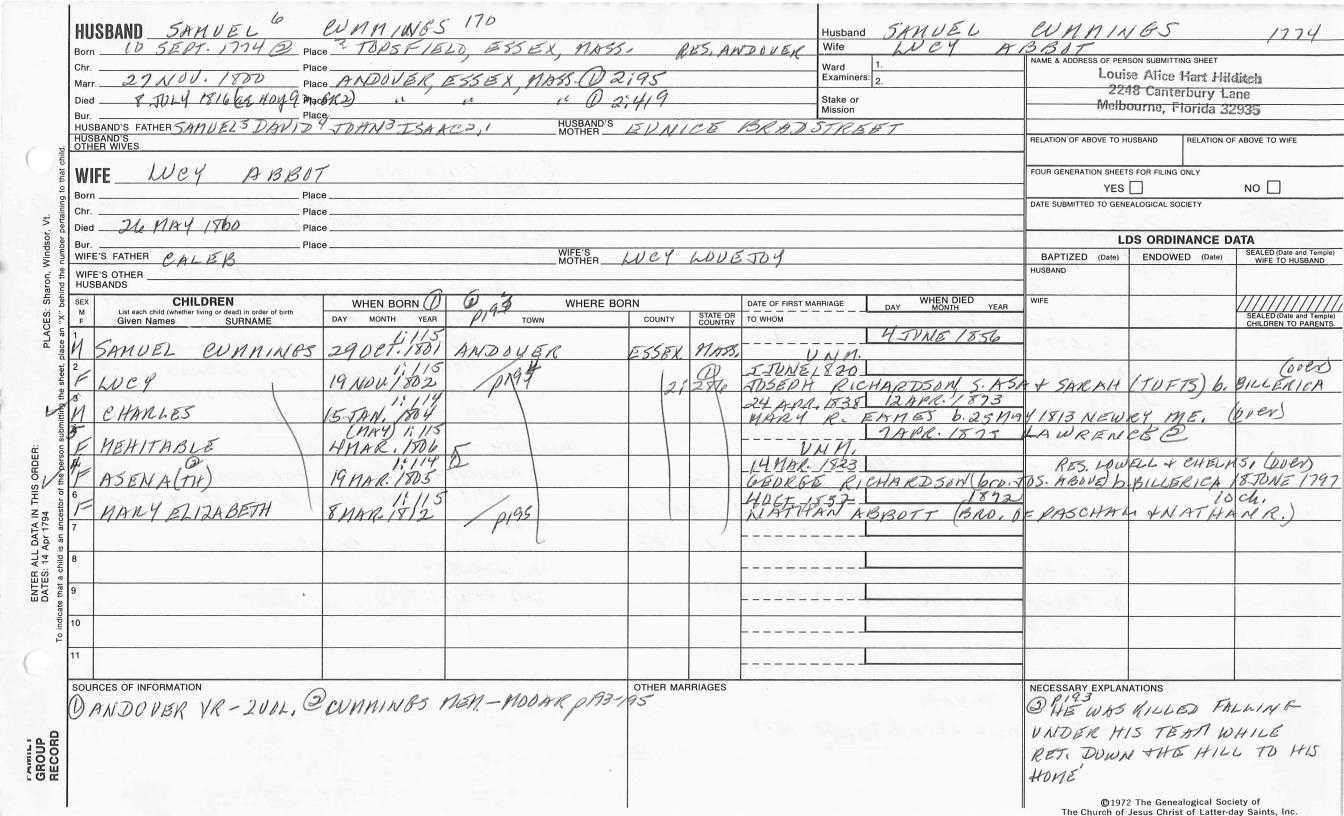 HUSBAND SAMUEL 6 CUMMINGS 170
Born 10 SEPT. 1774 ② Place ? TOPSFIELD, ESSEX, MASS. RES. ANDOVER
Chr. Place
Marr. 27 NOV. 1800 Place ANDOVER, ESSEX, MASS. ① 2:95
Died 8 JULY 1816 Place " " " ① 2:419
Bur. Place
HUSBAND'S FATHER SAMUEL5 DAVID4 JOHN3 ISAAC2,1 HUSBAND'S MOTHER EUNICE BRADSTREET
HUSBAND'S OTHER WIVES
WIFE LUCY ABBOT
Born Place
Chr. Place
Died 26 MAY 1860 Place
Bur. Place
WIFE'S FATHER CALEB WIFE'S MOTHER LUCY LOVEJOY
WIFE'S OTHER HUSBANDS
Husband SAMUEL CUMMINGS 1774
Wife LUCY ABBOT
Ward Examiners: 1. 2.
Stake or Mission
NAME & ADDRESS OF PERSON SUBMITTING SHEET
Louise Alice Hart Hilditch
2248 Canterbury Lane
Melbourne, Florida 32935
RELATION OF ABOVE TO HUSBAND RELATION OF ABOVE TO WIFE
FOUR GENERATION SHEETS FOR FILING ONLY
YES NO
DATE SUBMITTED TO GENEALOGICAL SOCIETY
LDS ORDINANCE DATA
BAPTIZED (Date) ENDOWED (Date) SEALED (Date and Temple) WIFE TO HUSBAND
HUSBAND
WIFE
SEALED (Date and Temple) CHILDREN TO PARENTS
SEX M F CHILDREN WHEN BORN ① ② p193 WHERE BORN DATE OF FIRST MARRIAGE WHEN DIED
List each child (whether living or dead) in order of birth
Given Names SURNAME DAY MONTH YEAR TOWN COUNTY STATE OR COUNTRY TO WHOM DAY MONTH YEAR
1 1:115 4 JUNE 1856
M SAMUEL CUMMINGS 29 OCT. 1801 ANDOVER ESSEX MASS. UNM.
2 1:115 ① 5 JUNE 1820 (over)
F LUCY 19 NOV. 1802 p194 2:286 JOSEPH RICHARDSON S. ASA & SARAH (TUFTS) b. BILLERICA
3 1:114 24 APR. 1838 12 APR. 1873
M CHARLES 15 JAN. 1804 MARY R. EAMES b. 25 MAY 1813 NEWRY ME. (over)
5 (MAY) 1:115 7 APR. 1875 LAWRENCE ②
F MEHITABLE 4 MAR. 1806 UNM.
4 ② 1:114 14 MAR. 1823 RES. LOWELL & CHELMS, (over)
F ASENA(TH) 19 MAR. 1805 GEORGE RICHARDSON (bro. JOS. ABOVE) b. BILLERICA 18 JUNE 1797
6 1:115 1872 10 ch.
F MARY ELIZABETH 8 MAR. 1812 p195 NATHAN ABBOTT (BRO. OF PASCHAL & NATHAN R.)
7
8
9
10
11
SOURCES OF INFORMATION
① ANDOVER VR - 2 VOL. ② CUMMINGS MEM - MOOAR p193-195
OTHER MARRIAGES
NECESSARY EXPLANATIONS
② p193 HE WAS KILLED FALLING
UNDER HIS TEAM WHILE
RET. DOWN THE HILL TO HIS
HOME'
©1972 The Genealogical Society of
The Church of Jesus Christ of Latter-day Saints, Inc.
FAMILY GROUP RECORD
ENTER ALL DATA IN THIS ORDER:
DATES: 14 Apr 1794 PLACES: Sharon, Windsor, Vt.
To indicate that a child is an ancestor of the person submitting the sheet, place an "X" behind the number pertaining to that child.